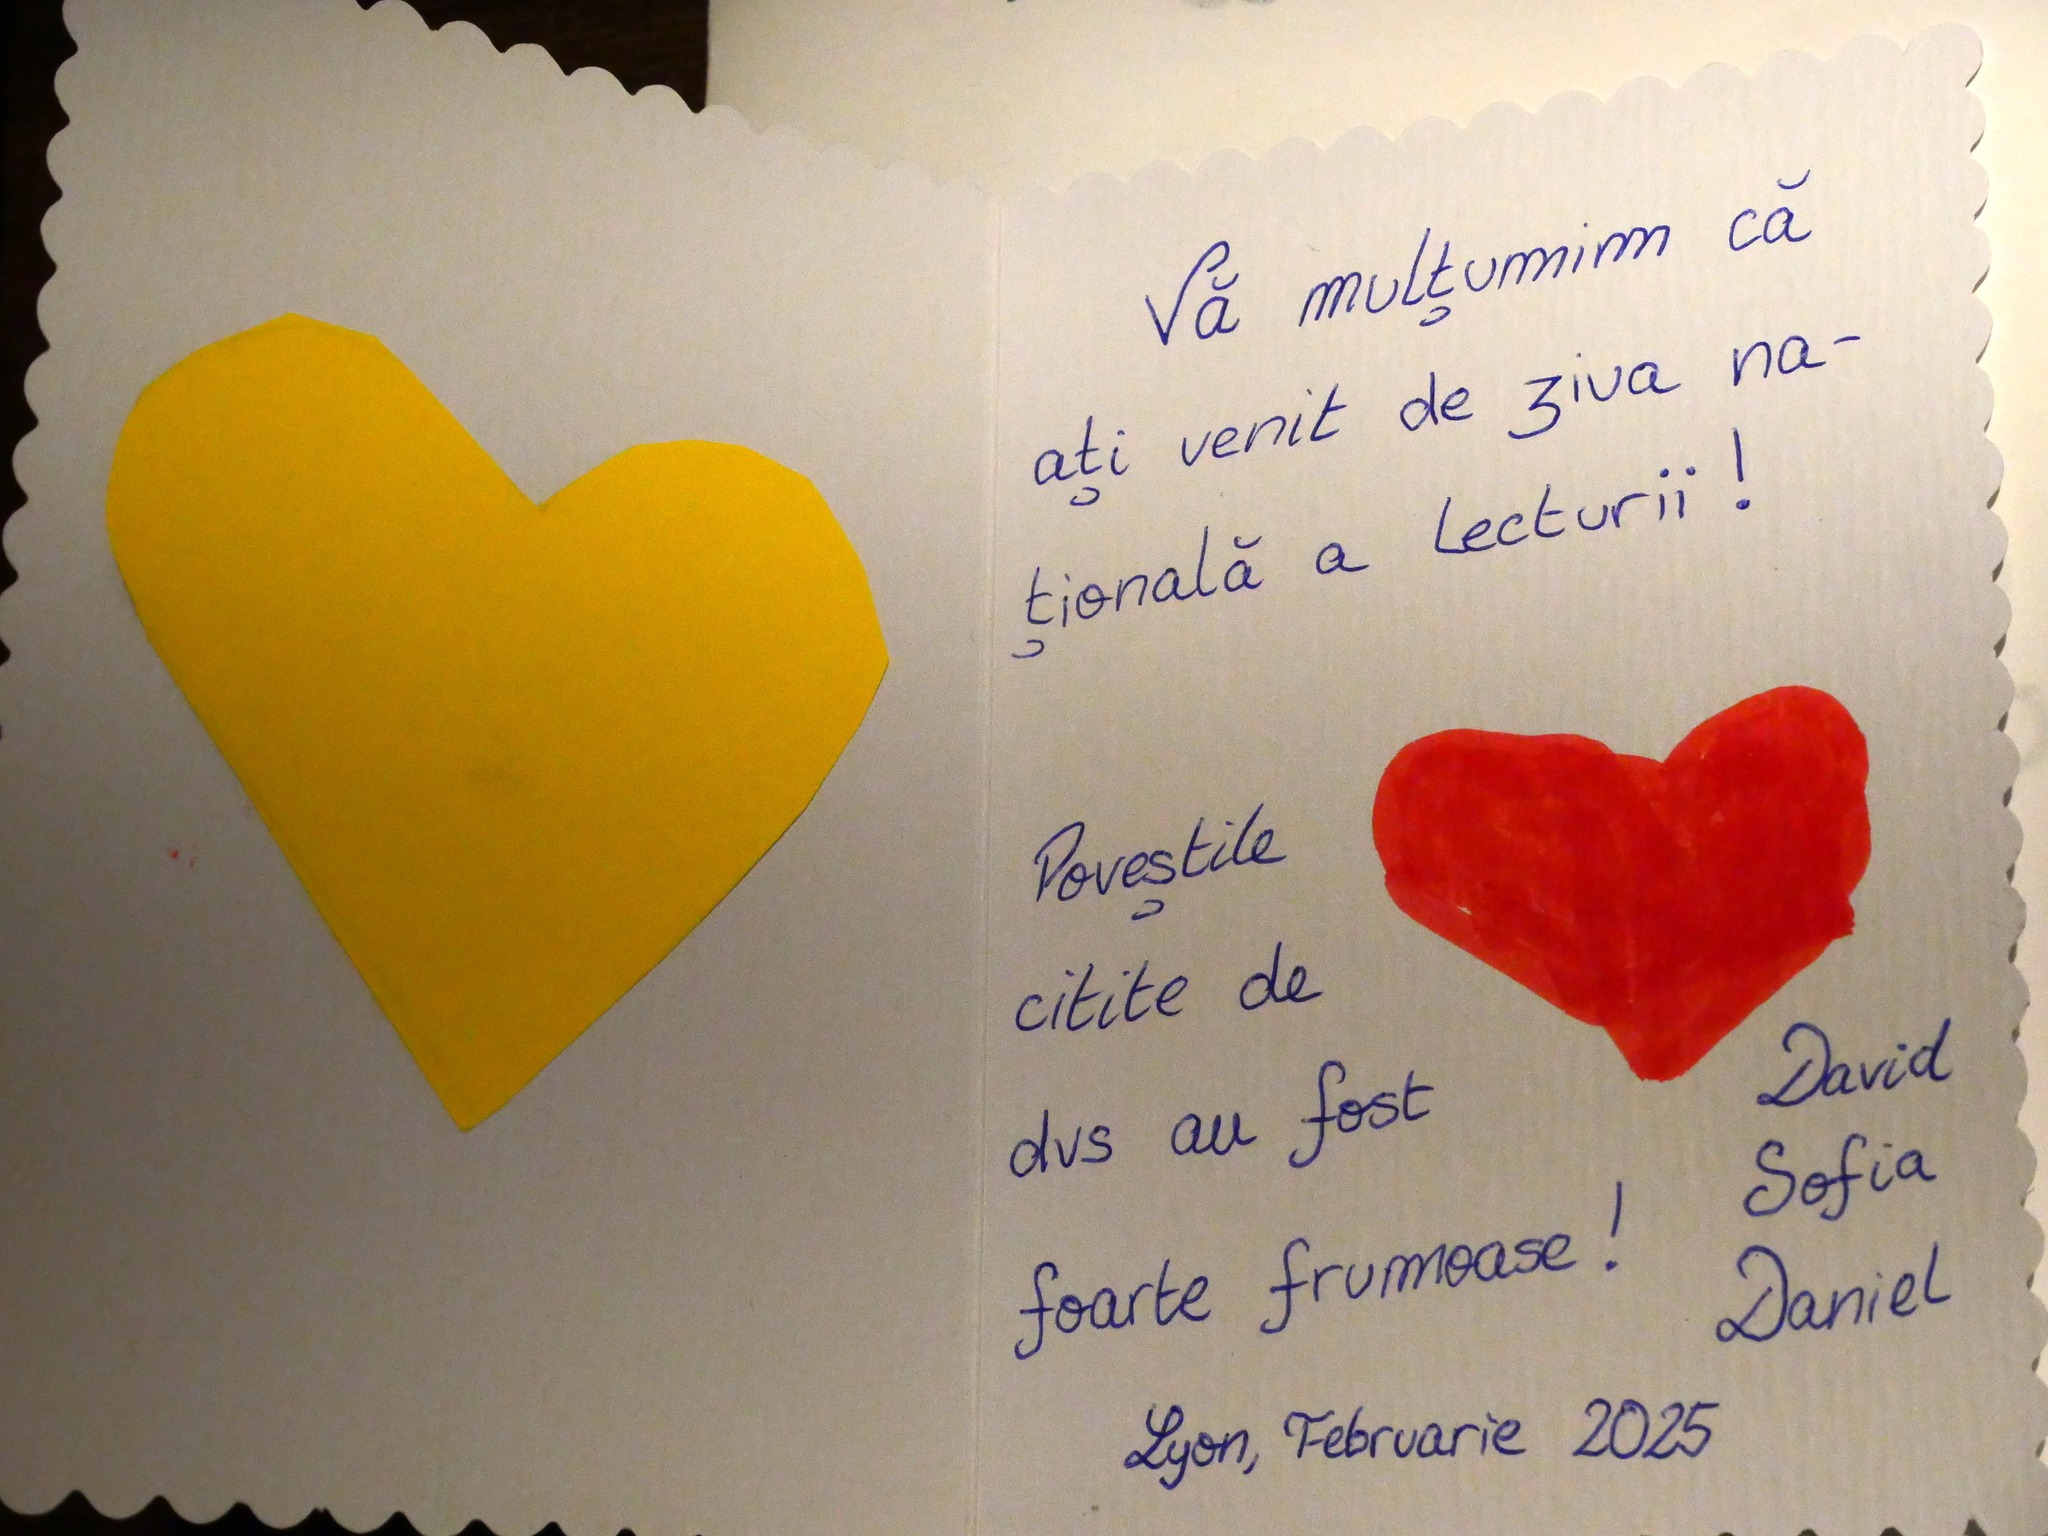 Vă mulțumim că
ați venit de ziva na-
țională a lecturii!
Poveștile
citite de
dvs au fost
foarte frumoase!
David
Sofia
Daniel
Lyon, Februarie 2025